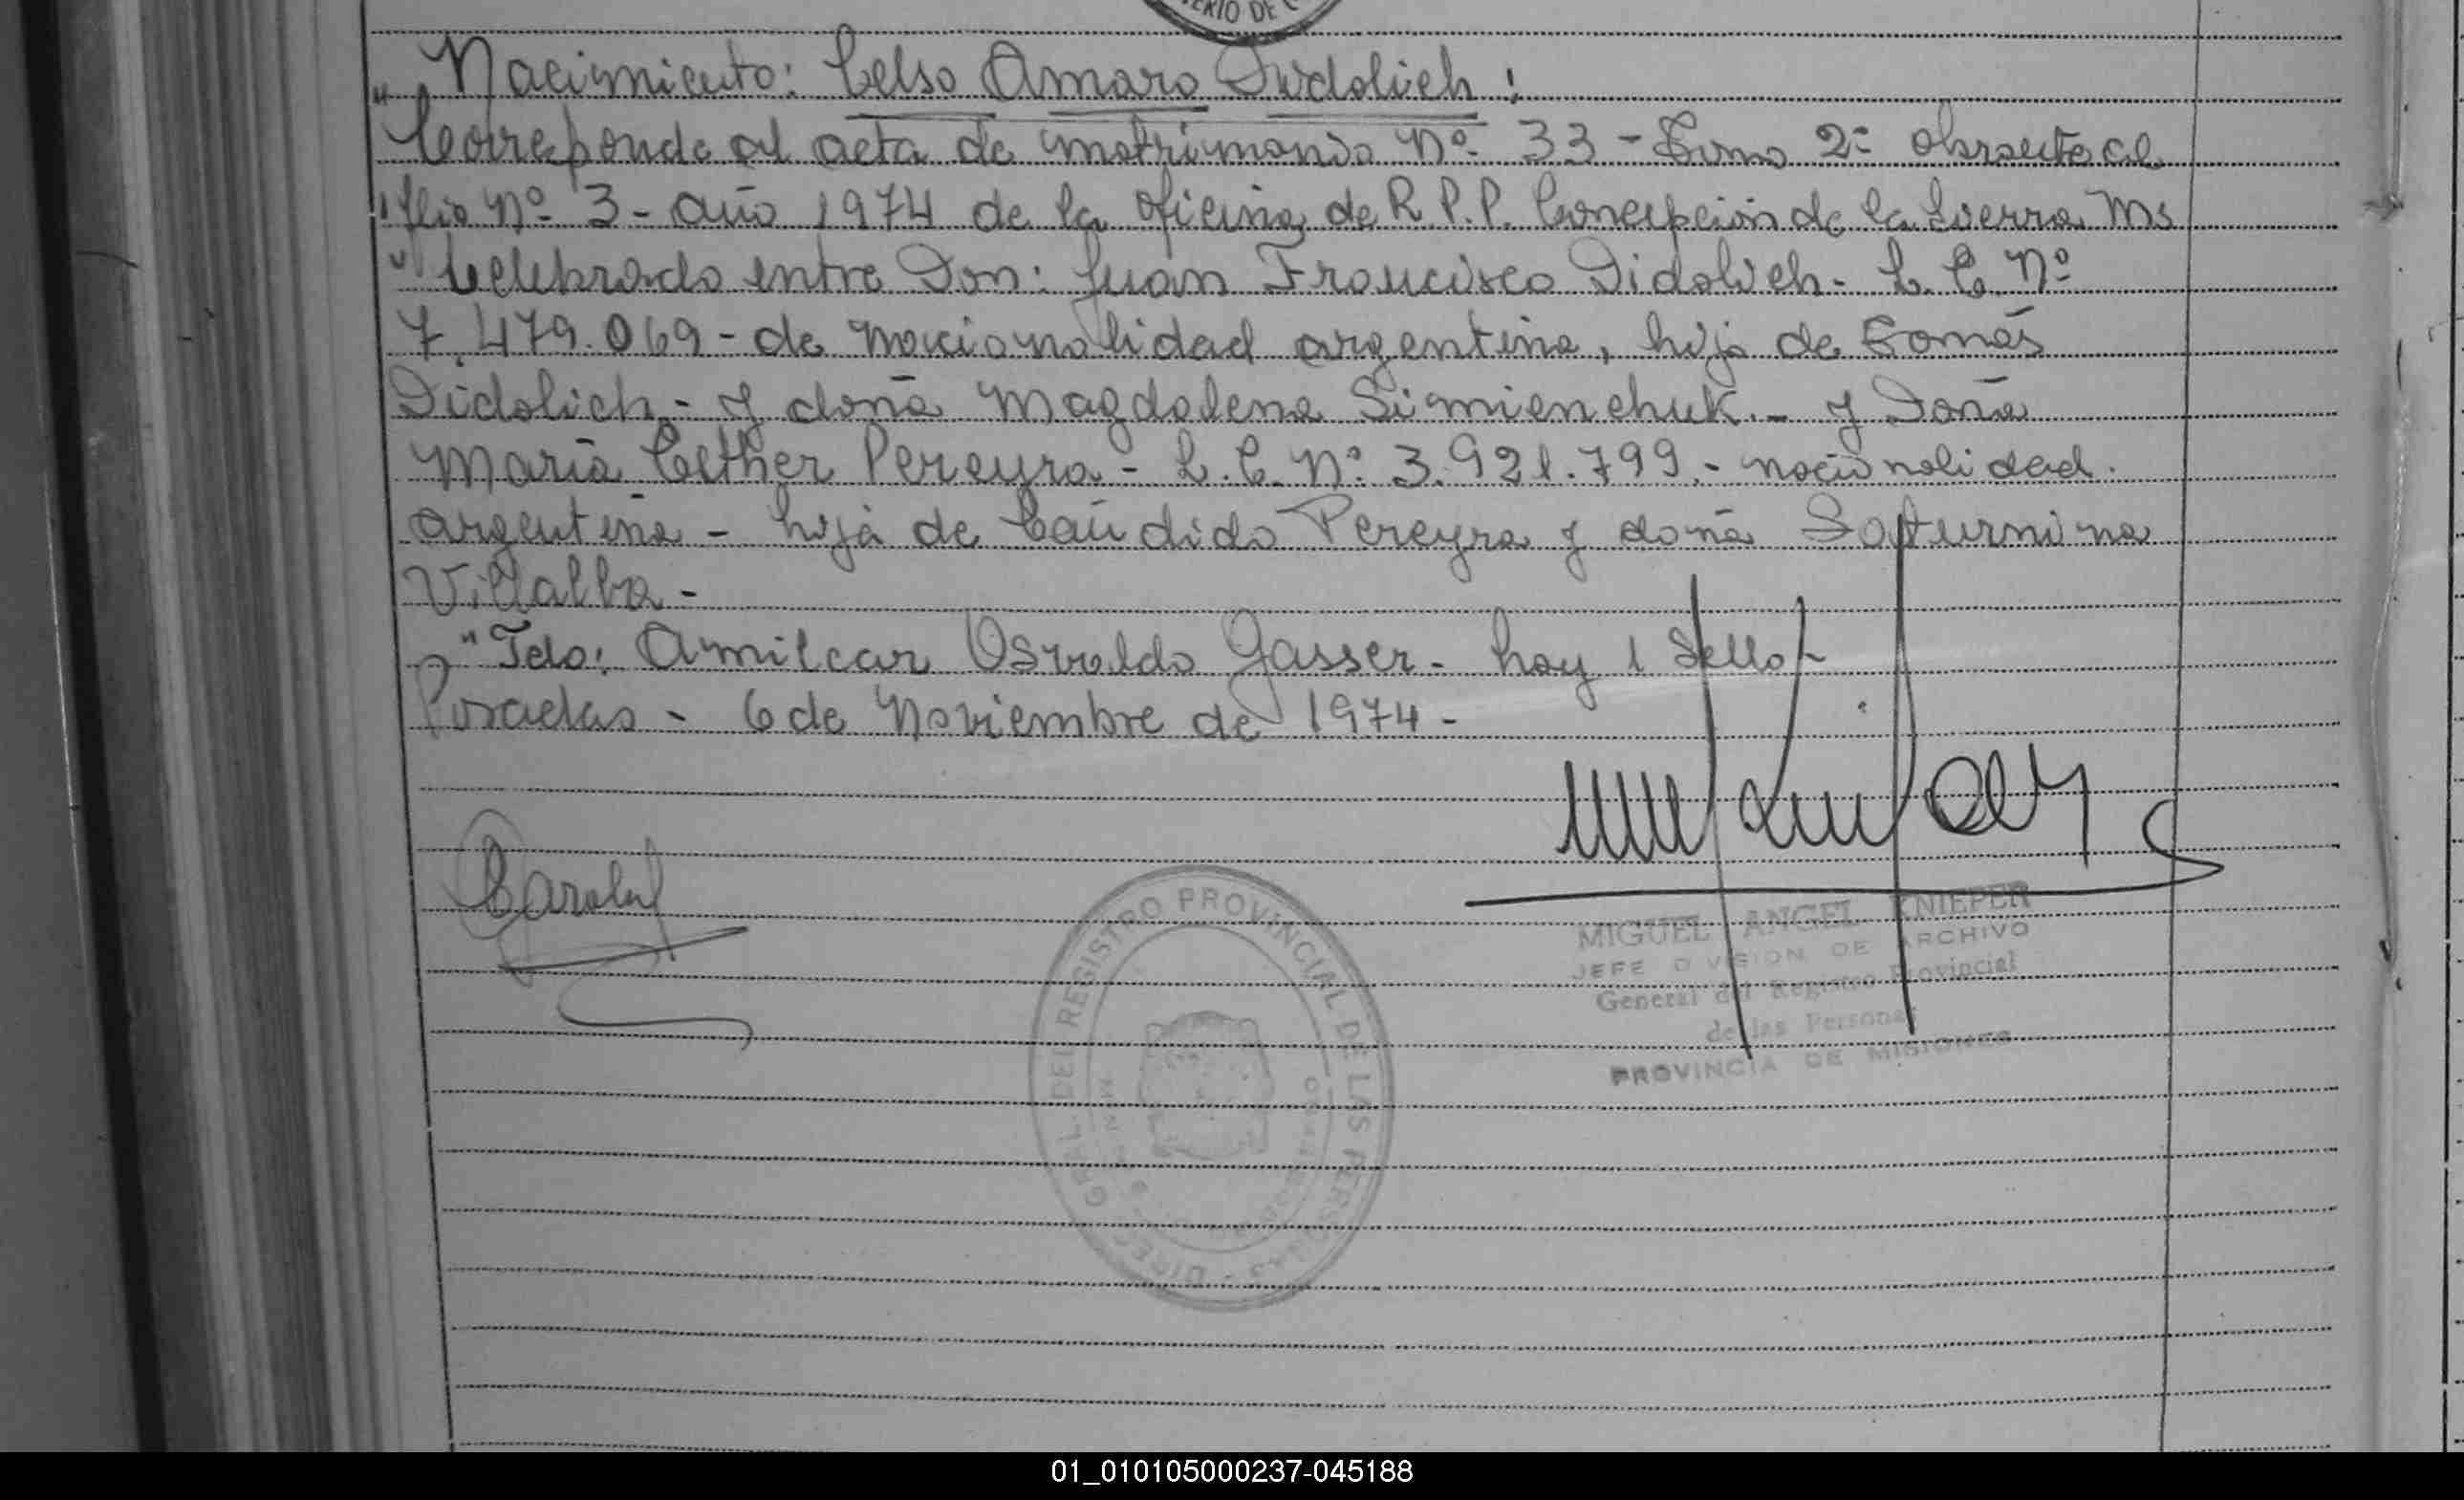 ERIO DE
" Nacimiento: Celso Amaro Didolich:
Correponde al acta de matrimonio Nº 33 - Tomo 2º obrante al
" flio Nº 3 - año 1974 de la oficina de R.P.P. Concepción de la Sierra Ms
" Celebrado entre Don: Juan Francisco Didolich - L. E. Nº
7.479.069 - de nacionalidad argentina, hijo de Tomás
Didolich - y doña Magdalena Simienchuk. - y Doña
María Esther Pereyra - L. C. Nº 3.921.799. - nacionalidad
argentina - hija de Cándido Pereyra y doña Saturnina
Villalba -
" Fdo: Amilcar Osvaldo Gasser - hay 1 Sello -
Posadas - 6 de Noviembre de 1974 -
MIGUEL ANGEL KNIEPER
JEFE DIVISION DE ARCHIVO
General del Registro Provincial
de las Personas
PROVINCIA DE MISIONES
DIREC. GRAL. DEL REGISTRO PROVINCIAL DE LAS PERSONAS
01_010105000237-045188